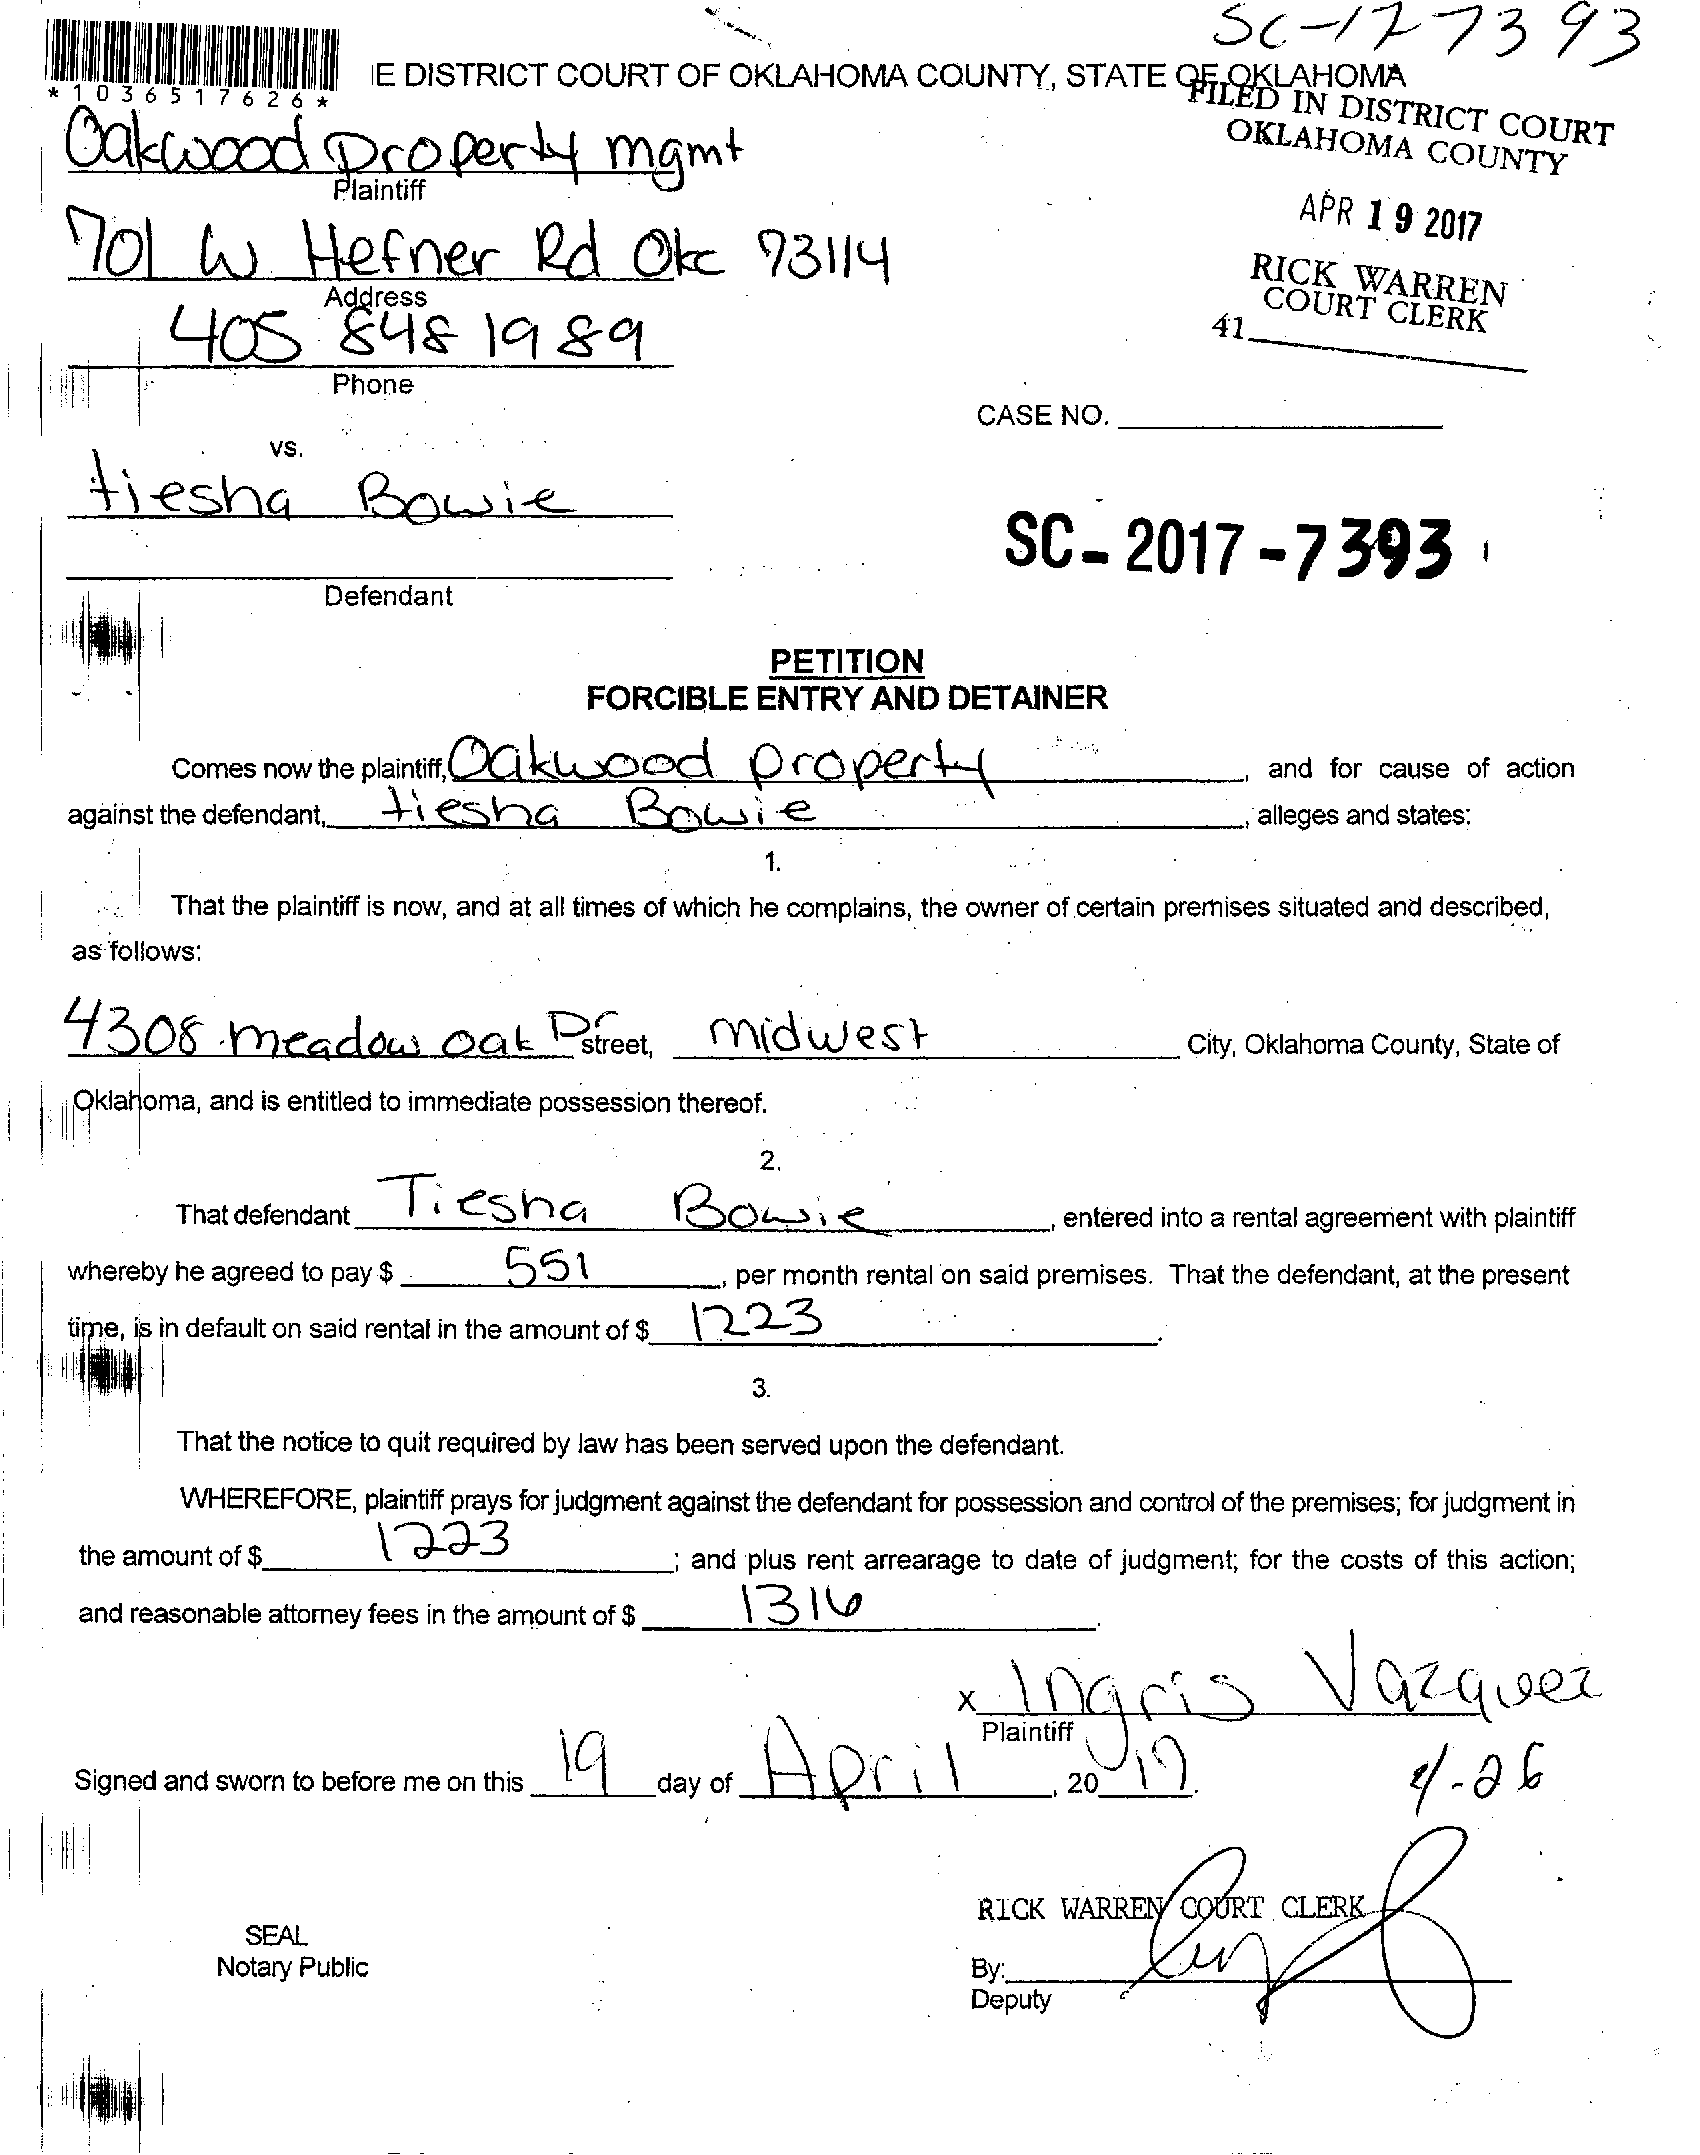 SC-17-7393
*1036517626*
IE DISTRICT COURT OF OKLAHOMA COUNTY, STATE OF OKLAHOMA
FILED IN DISTRICT COURT
OKLAHOMA COUNTY
Oakwood Property mgmt
Plaintiff
APR 19 2017
701 W Hefner Rd Okc 73114
Address
RICK WARREN
COURT CLERK
41
405 848 1989
Phone
CASE NO.
vs.
tiesha Bowie
SC-2017-7393
Defendant
PETITION
FORCIBLE ENTRY AND DETAINER
Comes now the plaintiff, Oakwood property, and for cause of action
against the defendant, tiesha Bowie, alleges and states:
1.
That the plaintiff is now, and at all times of which he complains, the owner of certain premises situated and described,
as follows:
4308 meadow oak Dr street, midwest City, Oklahoma County, State of
Oklahoma, and is entitled to immediate possession thereof.
2.
That defendant Tiesha Bowie, entered into a rental agreement with plaintiff
whereby he agreed to pay $ 551, per month rental on said premises. That the defendant, at the present
time, is in default on said rental in the amount of $ 1223.
3.
That the notice to quit required by law has been served upon the defendant.
WHEREFORE, plaintiff prays for judgment against the defendant for possession and control of the premises; for judgment in
the amount of $ 1223; and plus rent arrearage to date of judgment; for the costs of this action;
and reasonable attorney fees in the amount of $ 1316.
x Ingris Vazquez
Plaintiff
Signed and sworn to before me on this 19 day of April, 20 17.
4-26
RICK WARREN COURT CLERK
SEAL
Notary Public
By:
Deputy